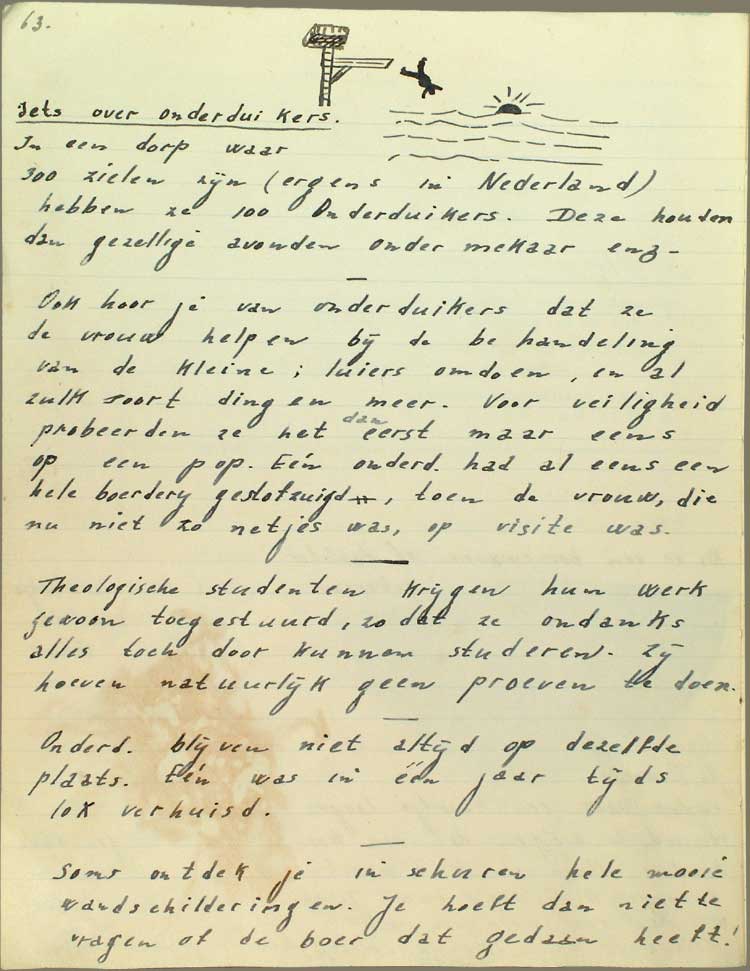 63.
Iets over onderduikers.
In een dorp waar
300 zielen zijn (ergens in Nederland)
hebben ze 100 Onderduikers. Deze houden
dan gezellige avonden onder mekaar enz-
Ook hoor je van onderduikers dat ze
de vrouw helpen bij de behandeling
van de kleine; luiers omdoen, en al
zulk soort dingen meer. Voor veiligheid
probeerden ze het dan eerst maar eens
op een pop. Eén onderd. had al eens een
hele boerdery gestofzuigd, toen de vrouw, die
nu niet zo netjes was, op visite was.
Theologische studenten krijgen hun werk
gewoon toegestuurd, zodat ze ondanks
alles toch door kunnen studeren. Zij
hoeven natuurlijk geen proeven te doen.
Onderd. blijven niet altijd op dezelfde
plaats. Eén was in één jaar tijds
10x verhuisd.
Soms ontdek je in schuren hele mooie
wandschilderingen. Je hoeft dan niet te
vragen of de boer dat gedaan heeft!